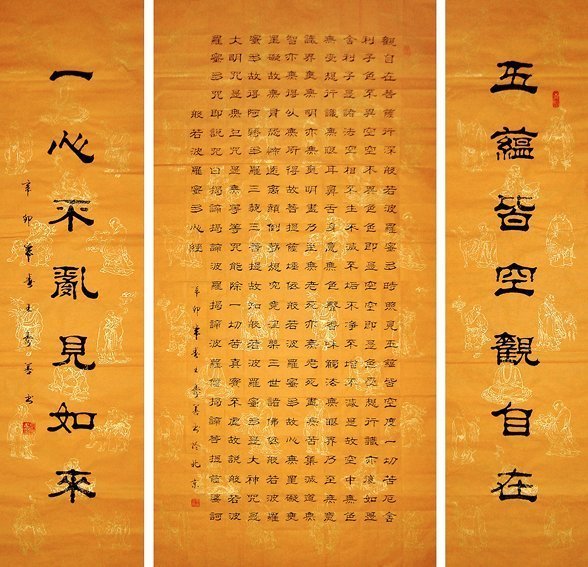 五蘊皆空觀自在
觀自在菩薩行深般若波羅蜜多時照見五蘊皆空度一切苦厄舍
利子色不異空空不異色色即是空空即是色受想行識亦復如是
舍利子是諸法空相不生不滅不垢不淨不增不減是故空中無色
無受想行識無眼耳鼻舌身意無色聲香味觸法無眼界乃至無意
識界無無明亦無無明盡乃至無老死亦無老死盡無苦集滅道無
智亦無得以無所得故菩提薩埵依般若波羅蜜多故心無罣礙無罣
礙故無有恐怖遠離顛倒夢想究竟涅槃三世諸佛依般若波羅
蜜多故得阿耨多羅三藐三菩提故知般若波羅蜜多是大神咒是
大明咒是無上咒是無等等咒能除一切苦真實不虛故說般若波
羅蜜多咒即說咒曰揭諦揭諦波羅揭諦波羅僧揭諦菩提薩婆訶
般若波羅蜜多心經
辛卯年春王秀善書於北京
一心不亂見如來
辛卯年春王秀善書